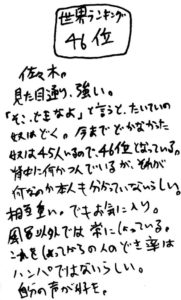 世界ランキング
46位
佐々木。
見た目通り、強い。
「そこ、どきなよ」と言うと、たいていの
奴はどく。今までどかなかった
奴は45人いるので、46位となっている。
特に何かつんでいるが、それが
何なのか本人も分かっていないらしい。
相当重い。でもお気に入り。
風呂以外では常にしょっている。
これをしょってからの人のどき率は
ハンパではないらしい。
自分の声が好き。